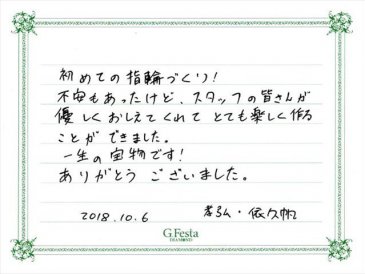 初めての指輪づくり!
不安もあったけど、スタッフの皆さんが
優しくおしえてくれて とても楽しく作る
ことが できました。
一生の宝物です!
ありがとう ございました。
2018.10.6 孝弘・依久帆
G.Festa
DIAMOND